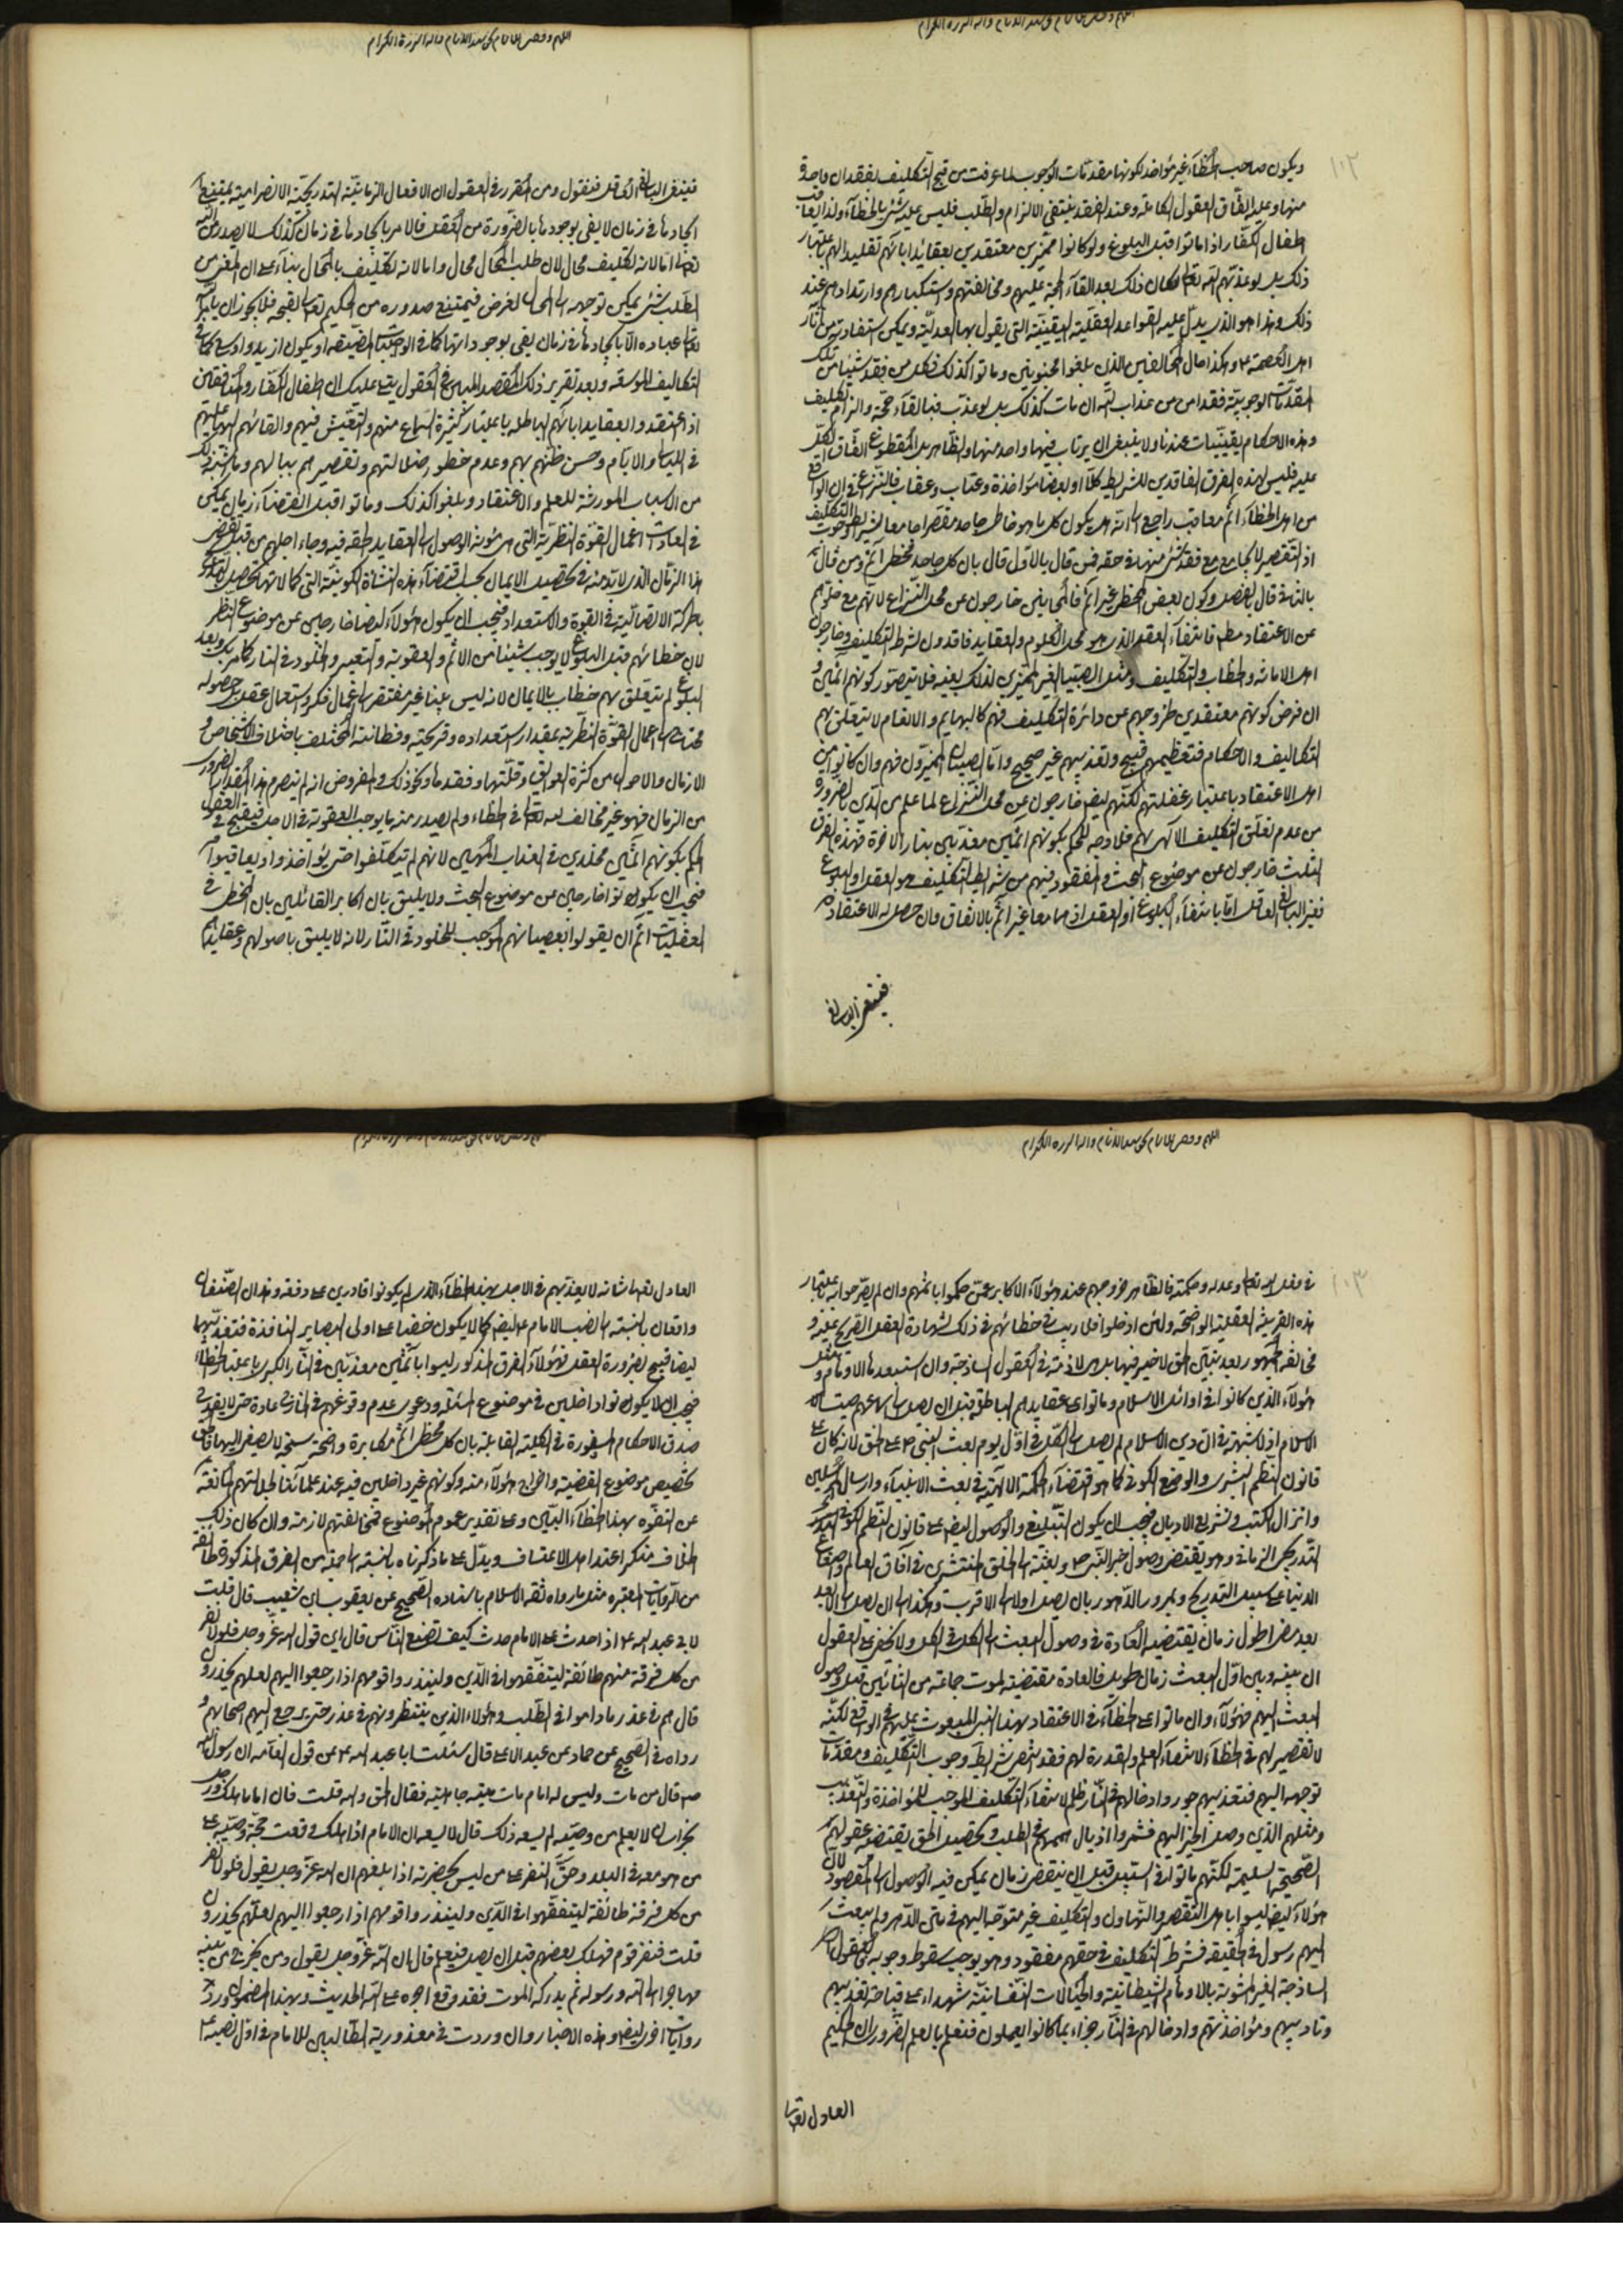 ويكون صاحب الخطاء غير مؤاخذ لكونها مقدمات الوجوب لما عرفت من قبح التكليف بفقدان واحدة
منها وعليه اتفاق العقول الكاملة وعند الفقد ينتفى الالزام والطلب فليس عليه شئ بالخطاء ولذا لا يعاقب
اطفال الكفار اذا ماتوا قبل البلوغ ولو كانوا مميزين معتقدين بعقائد ابائهم تقليدا لهم باعتبار
ذلك بل لو عذبهم الله تعالى لكان ذلك بعد القاء الحجة عليهم ومخالفتهم واستكبارهم وارتدادهم عند
ذلك وهذا هو الذي يدل عليه القواعد العقلية اليقينية التي يقول بها العدلية ويمكن استفادته من اثار
اهل العصمة ع وهكذا حال المخالفين الذين بلغوا مجنونين وماتوا كذلك فكل من فقد شيئا من تلك
المقدمات الوجوبية فقد امن من عذاب الله ان مات كذلك بل لو عذب فبالقاء حجة والزام تكليف
وهذه الاحكام يقينيات عندنا ولا ينبغي ان يرتاب فيها واحد منها والظاهر بل المقطوع اتفاق الكل
عليه فليس لهذه الفرق الفاقدين للشرايط كلا او بعضا مؤاخذة وعتاب وعقاب فالنزاع في ان الواقع
من اهل الخطاء اثم معاقب راجع الى انه هل يكون كل ما هو خاطئ جاحد مقصرا جامعا لشرايط التكليف
اذ التقصير لا يجامع مع فقد شئ منها في حقه فمن قال بالاول قال بان كل جاحد مخطئ آثم ومن قال
بالثاني قال بالفصل وكون بعض المخطئ غير آثم فالمجانين خارجون عن محل النزاع لانهم مع خلوهم
عن الاعتقاد مطلقا فانتفاء العقل الذي هو محل العلوم والعقايد فاقدون لشرط التكليف وخارجون
اهل الاماتة والخطاب والتكليف ومثل الصبيان الغير المميزين لذلك بعينه فلا يتصور كونهم اثمين و
ان فرض كونهم معتقدين لخروجهم عن دائرة التكليف فهم كالبهايم والانعام لا يتعلق بهم
التكاليف والاحكام فتعظيمهم قبيح وتعذيبهم غير صحيح واما الصبيان المميزون فهم وان كانوا من
اهل الاعتقاد باعتبار غفلتهم لكنهم ايضا خارجون عن محل النزاع لما علم من الدين بالضرورة
من عدم تعلق التكليف الالهي بهم فلا وجه للحكم بكونهم اثمين معذبين بنار الاخرة فهذه الفرق
الثلث خارجون عن موضوع البحث والمفقود فيهم من شرايط التكليف هو العقل او البلوغ
فغير البالغ العاقل اما بانتفاء البلوغ او العقل اذ هما معا غير اثم بالاتفاق وان حصل له الاعتقاد
فينبغي البالغ
فينبغي البالغ العاقل فنقول ومن المقرر في العقول ان الافعال الزمانية التدريجية الانصرامية يمتنع
ايجادها في زمان لا يفى بوجودها بالضرورة من العقل فالامر بايجادها في زمان كذلك لا يصدر من الله
تعالى اما لانه تكليف محال لان طلب المحال محال واما لانه تكليف بالمحال بناء على ان الغرض من
الطلب شئ يمكن توجهه الى المحال لغرض فيمتنع صدوره من الحكيم تعالى لقبحه فلا يجوز ان يأمر
تعالى عباده الا بايجادها في زمان يفى بوجوداتها كما في الواجبات المضيقة او يكون ازيد واوسع كما في
التكاليف الموسعة وبعد تقرير ذلك المقصد المبين في العقول يتبين عليك ان اطفال الكفار والمنافقين
اذا اعتقدوا بعقايد ابائهم الباطلة باعتبار كثيرة السماع منهم والتعيش فيهم والقائهم اليها عليهم
في الليالي والايام وحسن ظنهم بهم وعدم خطور ضلالتهم وتقصيرهم ببالهم وما شابه ذلك
من الاسباب المورثة للعلم والاعتقاد وبلغوا كذلك وماتوا قبل انقضاء زمان يمكن
في العادات اعمال القوة النظرية التي هي مئونة الوصول الى العقايد الحقة فيه وجاء اجلهم من قبل
هذا الزمان الذي لابد منه في تحصيل الايمان بحسب اقتضاء هذه النشأة الكونية التي كمالاتها تحصل
بالحركة الاتصالية في القوة والاستعداد فيجب ان يكون هؤلاء ايضا خارجين عن موضوع النظر
لان خطائهم قبل البلوغ لا يوجب شيئا من الاثم والعقوبة والتعيير والخلود في النار كما مر وبعد
البلوغ لم يتعلق بهم خطاب بالايمان لانه ليس بينا غير مفتقر الى اعمال فكر واستعمال عقل بل حصوله
محتاج الى اعمال القوة النظرية بمقدار استعداده وقريحته وفطانته المختلف باختلاف الاشخاص و
الازمان والاحوال من كثرة العوايق وقلتها وفقدها ونحو ذلك والمفروض انه لم يتصرم هذا المقدار الضرور
من الزمان فهو غير مخالف لله تعالى في الخطاء ولم يصدر منه ما يوجب العقوبة في الاجل فيقبح في العقول
الحكم بكونهم اثمين مخلدين في العذاب المهين لانهم لم يتكلفوا حتى يؤاخذوا ويعاقبوا
فيجب ان يكونوا خارجين عن موضوع البحث ولا يليق بان الاكابر القائلين بان المخطئ في
العقليات اثم ان يقولوا بعصيانهم الموجب للخلود في النار لانه لا يليق باصولهم وعقايدهم
في فعل الله تعالى وعدله وحكمته فالظاهر خروجهم عند هؤلاء الاكابر عمن حكموا باثمهم وان لم يصرحوا به باعتبار
هذه القرينة العقلية الواضحة ولئن ادخلوا فلا ريب في خطائهم في ذلك لشهادة العقل الصريح عليه و
مخالفة الجمهور بعد تبين الحق لا ضير فيها بل هي لازمة في العقول الساذجة وان استبعدها الاوهام ومثل
هؤلاء الذين كانوا في اوائل الاسلام وماتوا على عقايدهم الباطلة قبل ان يصل الى سامعهم صيت
الاسلام اذ لا شبهة في ان دين الاسلام لم يصل الى الكل في اول يوم بعث النبي ص على الخلق لانه كان على
قانون النظم البشرى والوضع الكونى كما هو اقتضاء الحكمة الالهية في بعث الانبياء وارسال المرسلين
وانزال الكتب وتشريع الاديان فيجب ان يكون التبليغ والوصول ايضا على قانون النظم الكونى
التدريجى الزمانى وهو يقتضى وصول خبر النبى ص وبعثته الى الخلق المنتشرين في آفاق العالم واصقاع
الدنيا على سبيل التدريج وبمرور الدهور بان يصل اولا الى الاقرب وهكذا الى ان يصل الى الابعد
بعد مضى اطول زمان يقتضيه العادة في وصول البعث الى الكل في الكل ولا يخفى على العقول
ان بينه وبين اول البعث زمان طويل فالعادة مقتضية لموت جماعة من النائين قبل وصول
البعث اليهم فهؤلاء وان ماتوا على الخطاء في الاعتقاد بهذا النبى المبعوث عليهم في الواقع لكنه
لا تقصير لهم في الخطاء لانتفاء العلم والقدرة لهم فقد انتفى شرايط وجوب التكليف ومقدمات
توجهه اليهم فتعذيبهم جور وادخالهم في النار ظلم لانتفاء التكليف الموجب للمؤاخذة والتعذيب
ومثلهم الذين وصل الخبر اليهم فشمروا اذيال هممهم في الطلب وتحصيل الحق بمقتضى عقولهم
الصحيحة السليمة لكنهم ماتوا في السبيل قبل ان ينقضى زمان يمكن فيه الوصول الى المقصود لان
هؤلاء ايضا ليسوا باهل التقصير والتهاون والتكليف غير متوجه اليهم في متن الدهر ولم يبعث
اليهم رسول في الحقيقة فشرط التكليف في حقهم مفقود وهو يوجب سقوط وجوبه فالعقول
الساذجة الغير المشوبة بالاوهام الشيطانية والخيالات النفسانية شهداء على قباحة تعذيبهم
وتاديبهم ومؤاخذتهم وادخالهم في النار جزاء بما كانوا يعملون فنعلم بالعلم الضرورى ان الحكيم
العادل تعالى
العادل تعالى شانه لا يعذبهم في الاجل بهذا الخطاء الذى لم يكونوا قادرين على دفعه وهذان الصنفان
واقعان بالنسبة الى نصب الامام ع ايضا كما لا يكون خفيا على اولى البصاير النافذة فتعذيبهما
ايضا قبيح بضرورة العقل فهؤلاء الفرق المذكور ليسوا باثمين معذبين في النار الكبرى باعتبار الخطاء
فيجب ان لا يكونوا داخلين في موضوع المسئلة ودعوى عدم وقوعهم في الخارج عادة حتى لا يقدح في
صدق الاحكام المسفورة في الكلية القائلة بان كل مخطئ آثم مكابرة واضحة سنحة لا يصغى اليها
تخصيص موضوع القضية واخراج هؤلاء منه وكونهم غير داخلين فيه عند علمائنا لجلالتهم المانعة
عن التفوه بهذا الخطاء البين وعلى تقدير عموم الموضوع فمخالفتهم لازمة وان كان ذلك
الخلاف منكرا عند اهل الاعتساف ويدل على ما ذكرناه بالنسبة الى جملة من الفرق المذكورة طائفة
من الروايات المعتبرة مثل ما رواه ثقة الاسلام باسناده الصحيح عن يعقوب ابن شعيب قال قلت
لابى عبد الله ع اذا حدث على الامام حدث كيف تصنع الناس قال اين قول الله عز وجل فلولا نفر
من كل فرقة منهم طائفة ليتفقهوا فى الدين ولينذروا قومهم اذا رجعوا اليهم لعلهم يحذرون
قال هم في عذر ماداموا في الطلب وهؤلاء الذين ينتظرونهم في عذر حتى يرجع اليهم اصحابهم و
رواه في الصحيح عن حماد عن عبد الاعلى قال سئلت ابا عبد الله ع عن قول العامة ان رسول الله
ص قال من مات وليس له امام مات ميتة جاهلية فقال الحق والله قلت فان اماما هلك ورجل
بخراسان لا يعلم من وصيه لم يسعه ذلك قال لا يسعه ان الامام اذا هلك وقعت حجة وصيه على
من هو معه في البلد وحق النفر على من ليس بحضرته اذا بلغهم ان الله عز وجل يقول فلولا نفر
من كل فرقة طائفة ليتفقهوا فى الدين ولينذروا قومهم اذا رجعوا اليهم لعلهم يحذرون
قلت فنفر قوم فهلك بعضهم قبل ان يصل فيعلم قال ان الله عز وجل يقول ومن يخرج من بيته
مهاجرا الى الله ورسوله ثم يدركه الموت فقد وقع اجره على الله الحديث وبهذا المضمون ورد
روايات اخرى ايضا وهذه الاخبار وان وردت في معذورية الطالبين للامام في اول نصبه ع